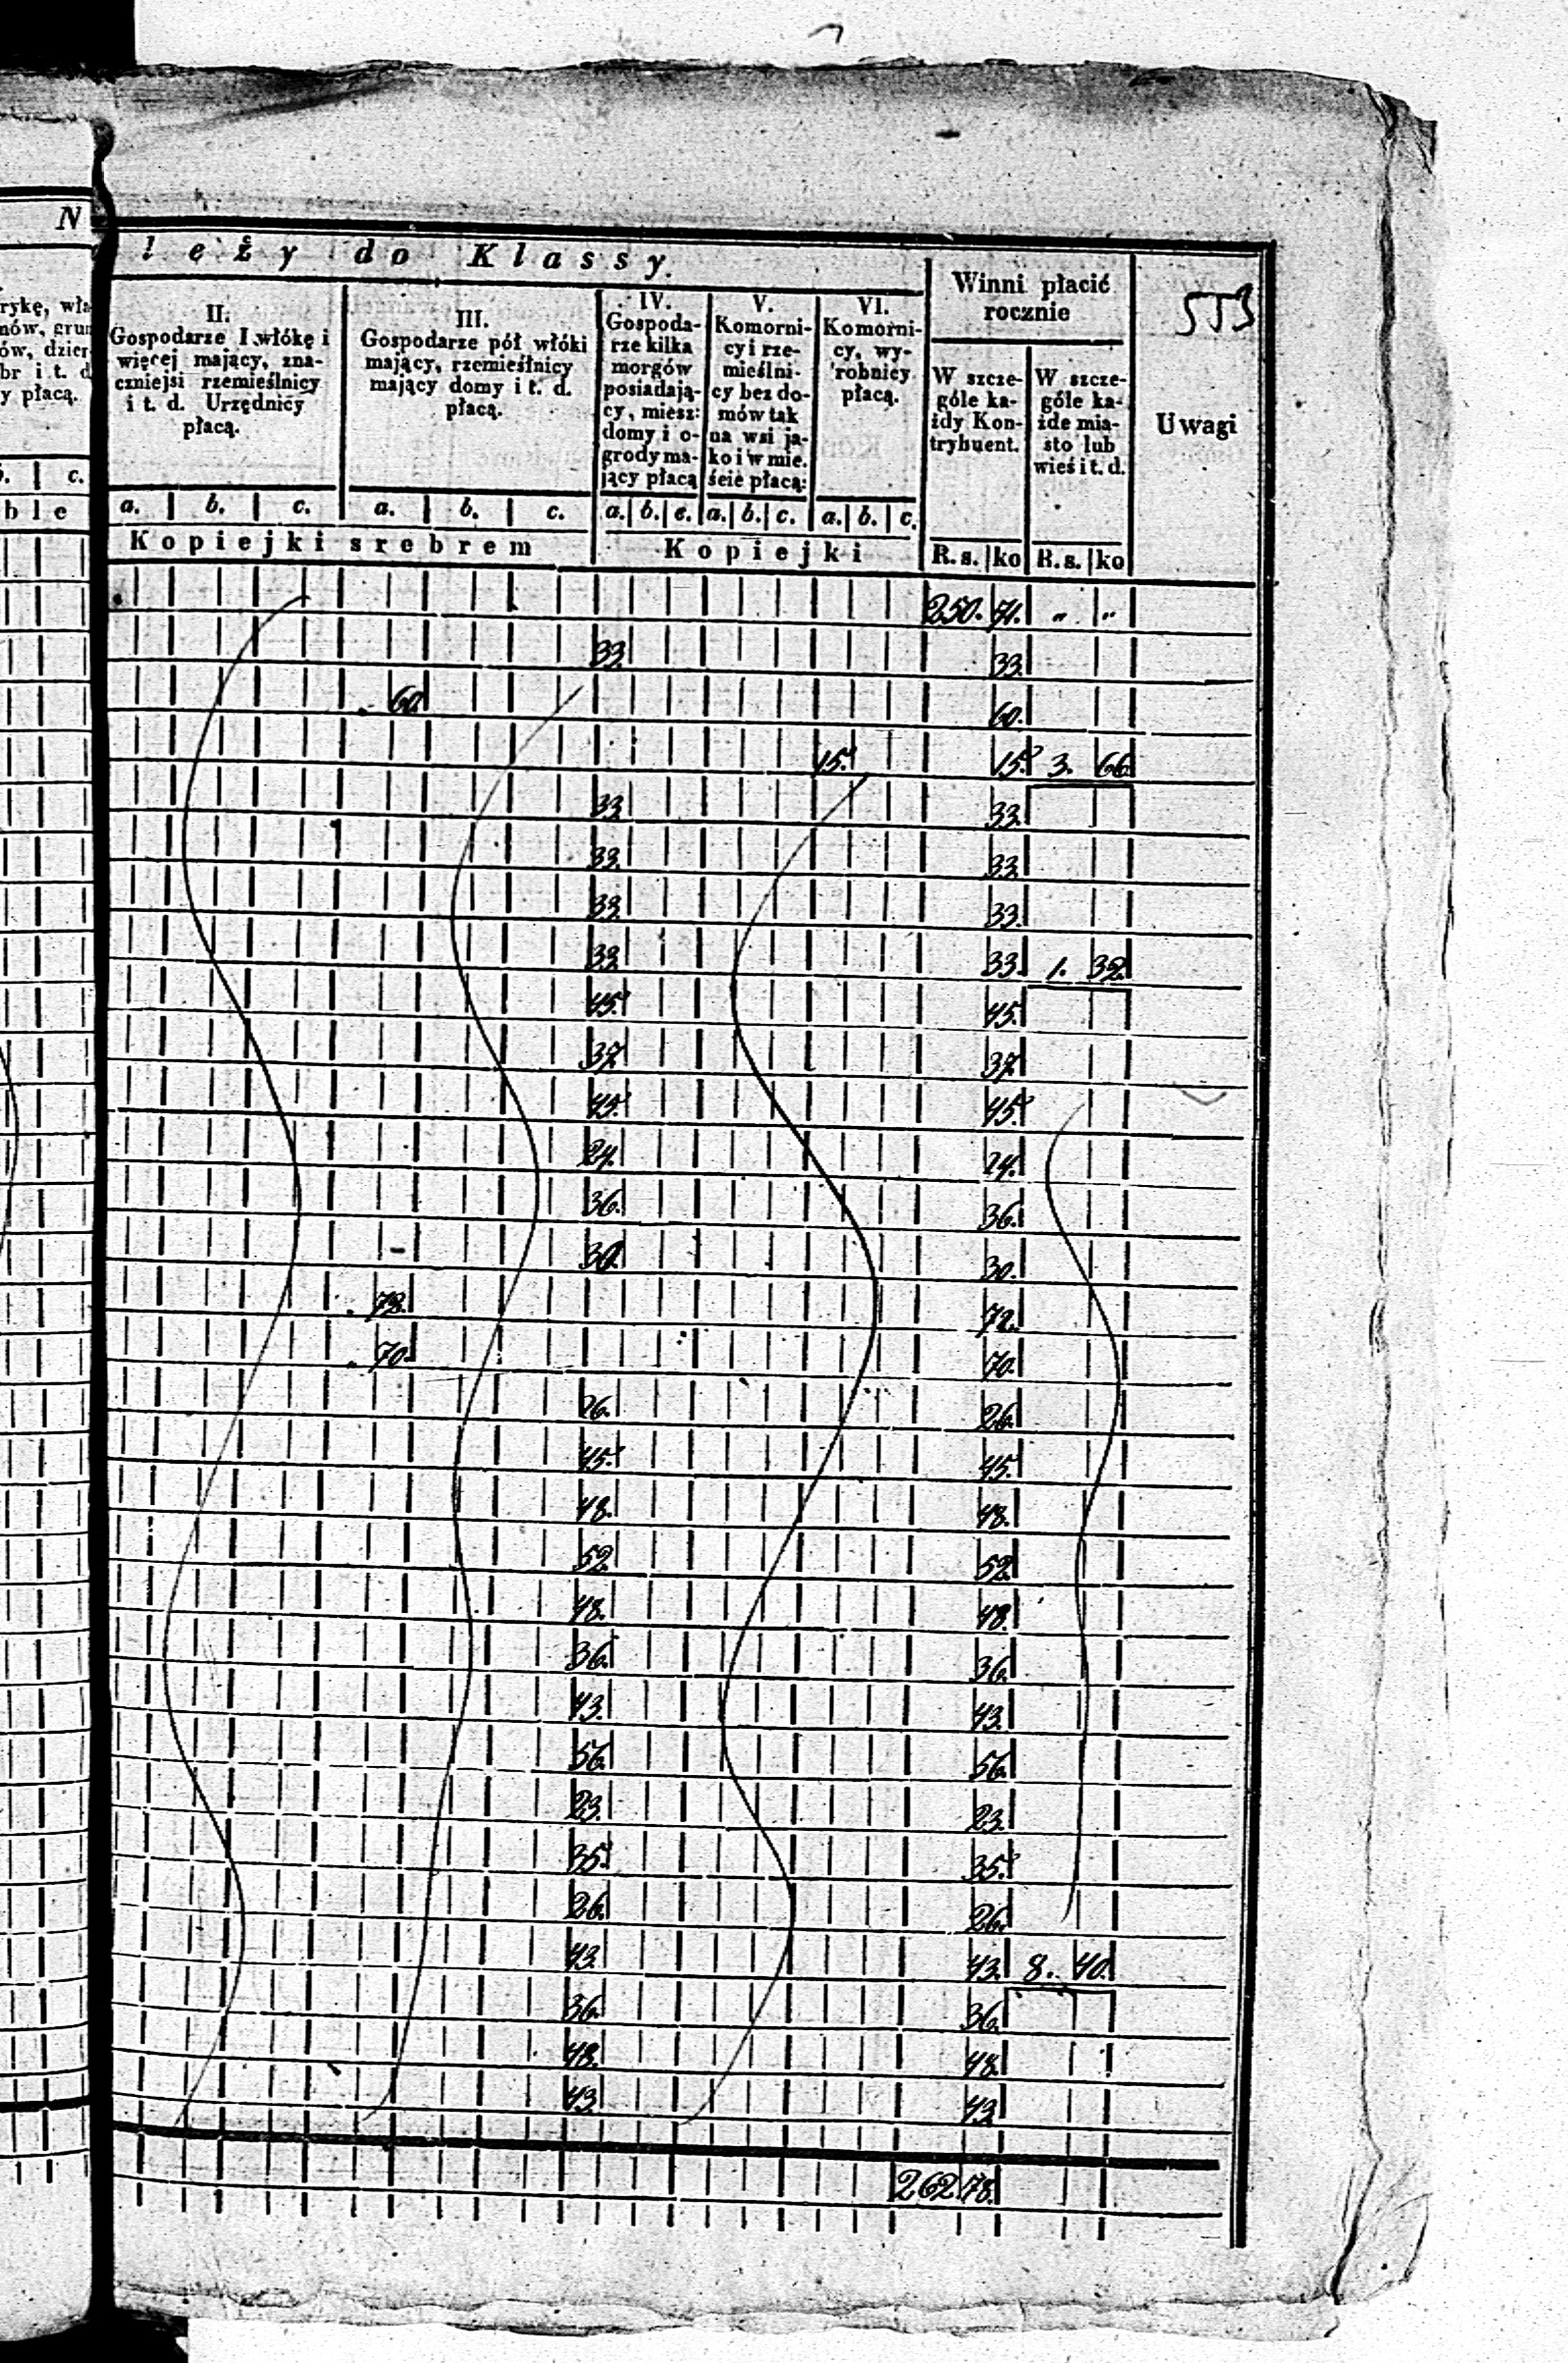 N leży do Klassy.
Winni płacić
rocznie
553
Uwagi
rykę, wła
nów, grun
ów, dzier
br i t. d
y płacą.
c.
ble
II.
Gospodarze I włókę i
więcej mający, zna-
czniejsi rzemieślnicy
i t. d. Urzędnicy
płacą.
III.
Gospodarze pół włóki
mający, rzemieślnicy
mający domy i t. d.
płacą.
IV.
Gospoda-
rze kilka
morgów
posiadają-
cy, miesz:
domy i o-
grody ma-
jący płacą
V.
Komorni-
cy i rze-
mieślni-
cy bez do-
mów tak
na wsi ja-
ko i w mie.
ście płacą:
VI.
Komorni-
cy, wy-
robnicy
płacą.
W szcze-
góle ka-
żdy Kon-
trybuent.
W szcze-
góle ka-
żde mia-
sto lub
wieś i t. d.
a. b. c. a. b. c. a. b. c. a. b. c. a. b. c.
Kopiejki srebrem Kopiejki R. s. ko R. s. ko
250. 71. „ „
33. 33.
60. 60.
15. 15. 3. 66.
33. 33.
33. 33.
33. 33.
33. 33. 1. 32.
45. 45.
37. 37.
45. 45.
24. 24.
36. 36.
30. 30.
72. 72.
70. 70.
26. 26.
45. 45.
48. 48.
52. 52.
48. 48.
36. 36.
43. 43.
56. 56.
23. 23.
35. 35.
26. 26.
43. 43. 8. 40.
36. 36.
48. 48.
43. 43.
262. 78.